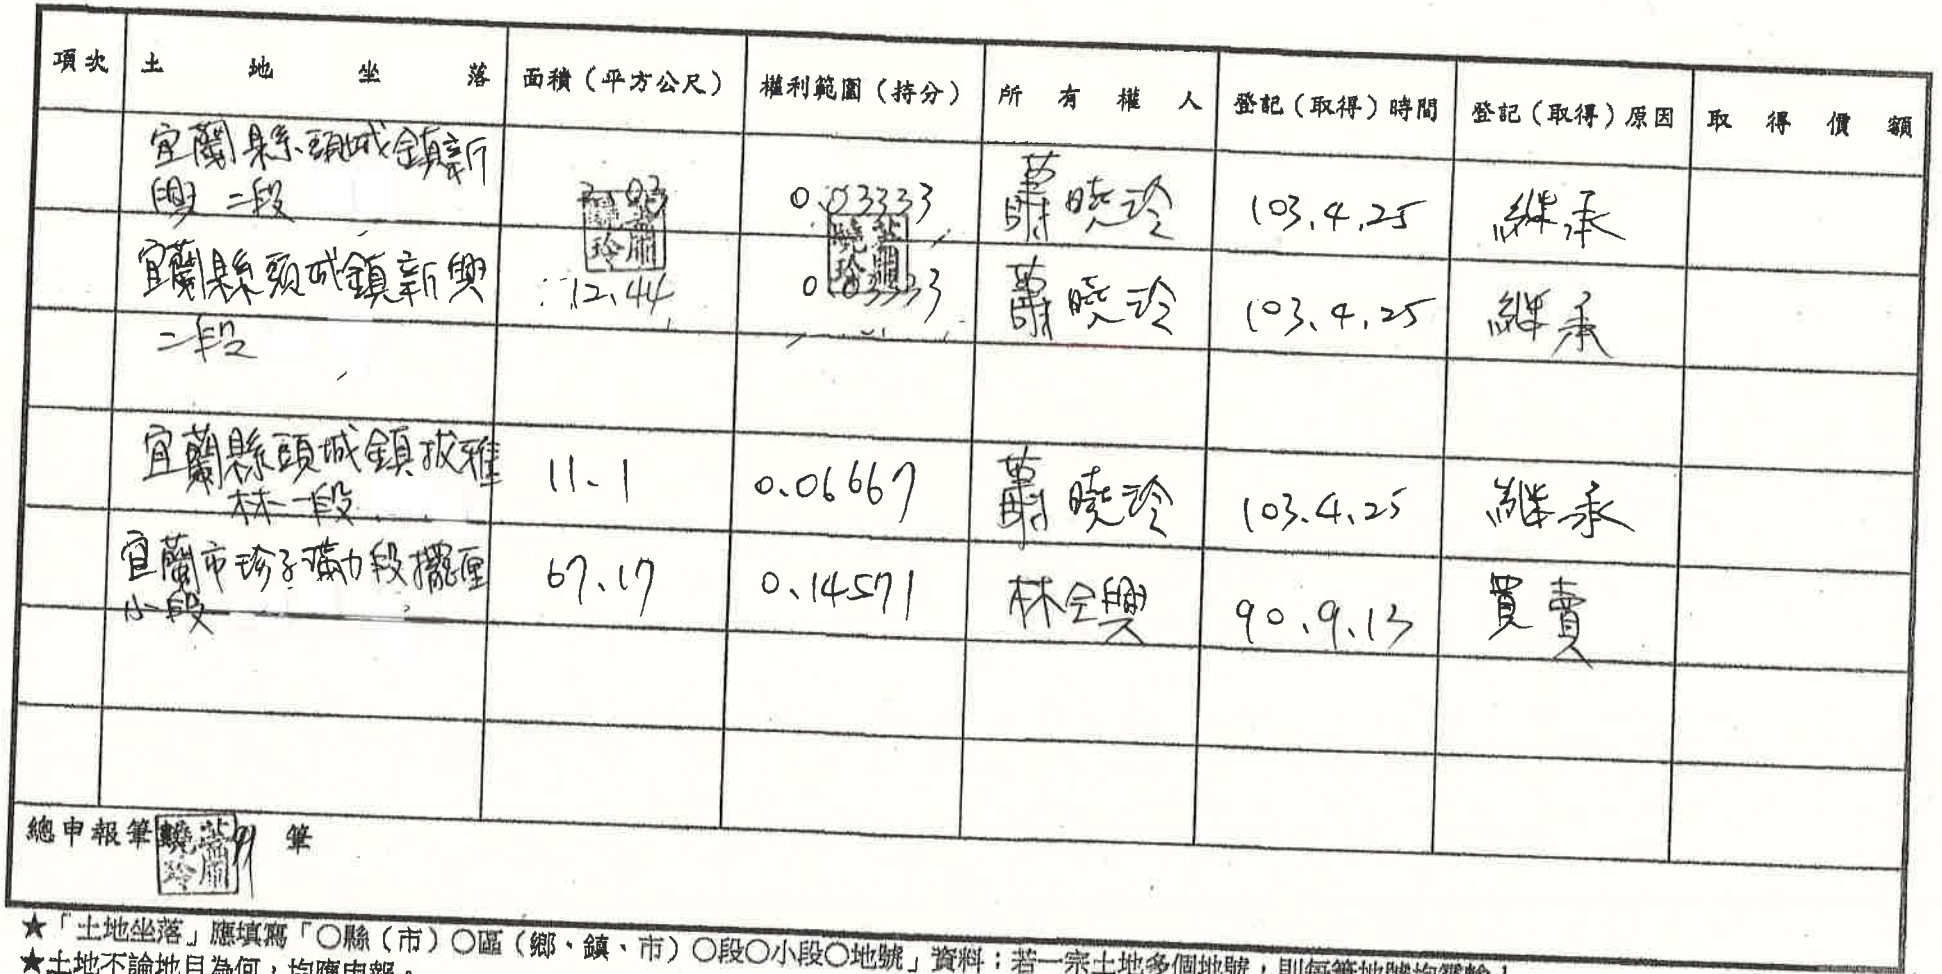 項次 土地坐落 面積（平方公尺） 權利範圍（持分） 所有權人 登記（取得）時間 登記（取得）原因 取得價額
宜蘭縣頭城鎮新
興二段 0.03333 蕭曉玲 103.4.25 繼承
宜蘭縣頭城鎮新興 12.44 0.03333 蕭曉玲 103.4.25 繼承
二段
宜蘭縣頭城鎮拔雅 11.1 0.06667 蕭曉玲 103.4.25 繼承
林一段
宜蘭市珍子滿力段擺厘 67.17 0.14571 林全興 90.9.13 買賣
小段
總申報筆 筆
★「土地坐落」應填寫「○縣（市）○區（鄉、鎮、市）○段○小段○地號」資料；若一宗土地多個地號，則每筆地號均需輸
★土地不論地目為何，均應申報。